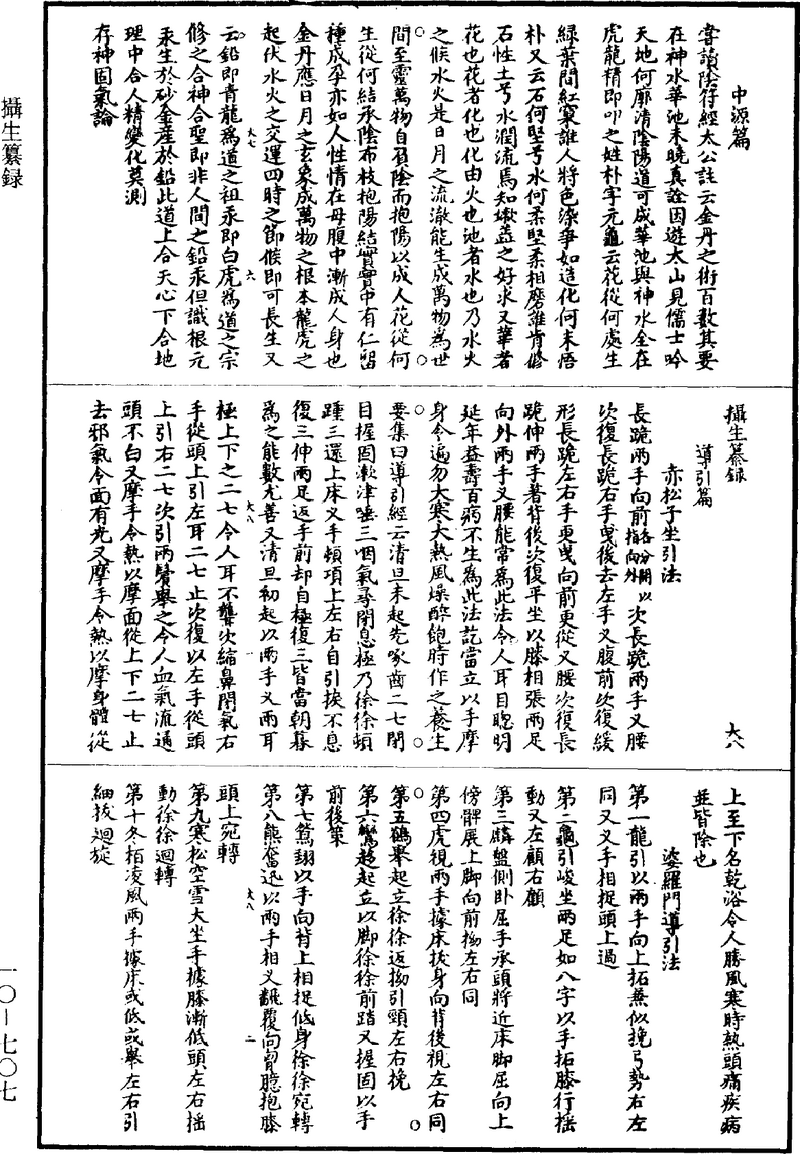 中源篇
嘗讀陰符經太公註云金丹之術百數其要
在神水華池未曉真詮因遊太山見儒士吟
天地何廓清陰陽道可成華池與神水全在
虎龍精即叩之姓朴字元龜云花從何處生
緑葉間紅裳誰人將色染爭如造化何未悟
朴又云石何堅兮水何柔堅柔相磨誰肯修
石性土兮水潤流焉知媺蓋之好求又華者
花也花者化也化由火也池者水也乃水火
之候水火是日月之流澈能生成萬物爲世
間至靈萬物自負陰而抱陽以成人花從何
生從何結承陰布枝抱陽結實實中有仁留
種成孕亦如人性情在母腹中漸成人身也
金丹應日月之玄象成萬物之根本龍虎之
起伏水火之交運四時之節候即可長生又
大七 六
云鉛即青龍爲道之祖汞即白虎爲道之宗
修之合神合聖即非人間之鉛汞但識根元
汞生於砂金產於鉛此道上合天心下合地
理中合人精變化莫測
存神固氣論
攝生纂録 大八
導引篇
赤松子坐引法
長跪兩手向前各分開以指向外次長跪兩手叉腰
次復長跪右手曳後去左手叉腹前次復緩
形長跪左右手更曳向前更從叉腰次復長
跪伸兩手著背後次復平坐以膝相張兩足
向外兩手叉腰能常爲此法令人耳目聰明
延年益壽百病不生爲此法訖當立以手摩
身令遍勿大寒大熱風燥醉飽時作之養生
要集曰導引經云清旦未起先啄齒二七閉
目握固漱津唾三咽氣尋閉息極乃徐徐頓
踵三還上床叉手頓項上左右自引挨不息
復三伸兩足返手前却自極復三皆當朝暮
爲之能數尤善又清旦初起以兩手叉兩耳
大八 一
極上下之二七令人耳不聾次縮鼻閉氣右
手從頭上引左耳二七止次復以左手從頭
上引右二七次引兩鬢舉之令人血氣流通
頭不白又摩手令熱以摩面從上下二七止
去邪氣令面有光又摩手令熱以摩身體從
上至下名乾浴令人勝風寒時熱頭痛疾病
並皆除也
婆羅門導引法
第一龍引以兩手向上拓兼似挽弓勢右左
同又叉手相捉頭上過
第二龜引峻坐兩足如八字以手拓膝行摇
動又左顧右顧
第三麟盤側卧屈手承頭將近床脚屈向上
傍髀展上脚向前拗左右同
第四虎視兩手據床拔身向背後視左右同
第五鶴舉起立徐徐返拗引頸左右挽
第六鸞趨起立以脚徐徐前踏又握固以手
前後策
第七鴛翃以手向背上相捉低身徐徐宛轉
第八熊奮迅以兩手相叉翻覆向胷臆抱膝
大八 二
頭上宛轉
第九寒松空雪大坐手據膝漸低頭左右摇
動徐徐迴轉
第十冬柏凌風兩手據床或低或舉左右引
細拔迴旋
攝生纂録
一〇—七〇七